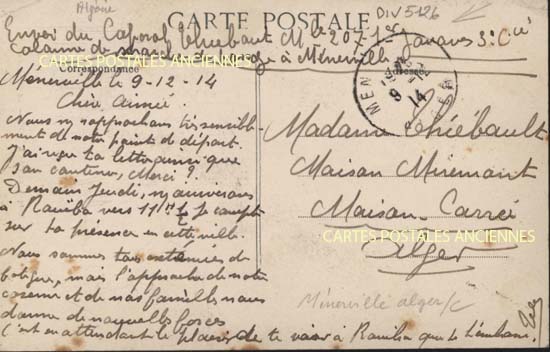 Algérie
DIV 5126
CARTE POSTALE
Envoi du Caporal Thiébaut Mle 2071 Zouaves 3e Cie
Colonne de à Ménerville
Correspondance
CARTES POSTALES ANCIENNES
Adresse
MEN
9
14
Ménerville le 9-12-14
Chère Aimée.
Nous ns rapprochons très sensible-
ment de notre point de départ.
J'ai reçu ta lettre ainsi que
son contenu, Merci ?
Demain Jeudi, ns arriverons
à Rouïba vers 11H je compte
sur ta présence en cette ville.
Nous sommes tous exténués de
fatigue, mais l'approche de notre
caserne et de nos familles nous
donne de nouvelles forces
C'est en attendant le plaisir de te voir à Rouïba que je t'embrasse.
Madame Thiébault
Maison Miremont
Maison-Carrée
CARTES POSTALES ANCIENNES
Alger
Ménerville alger